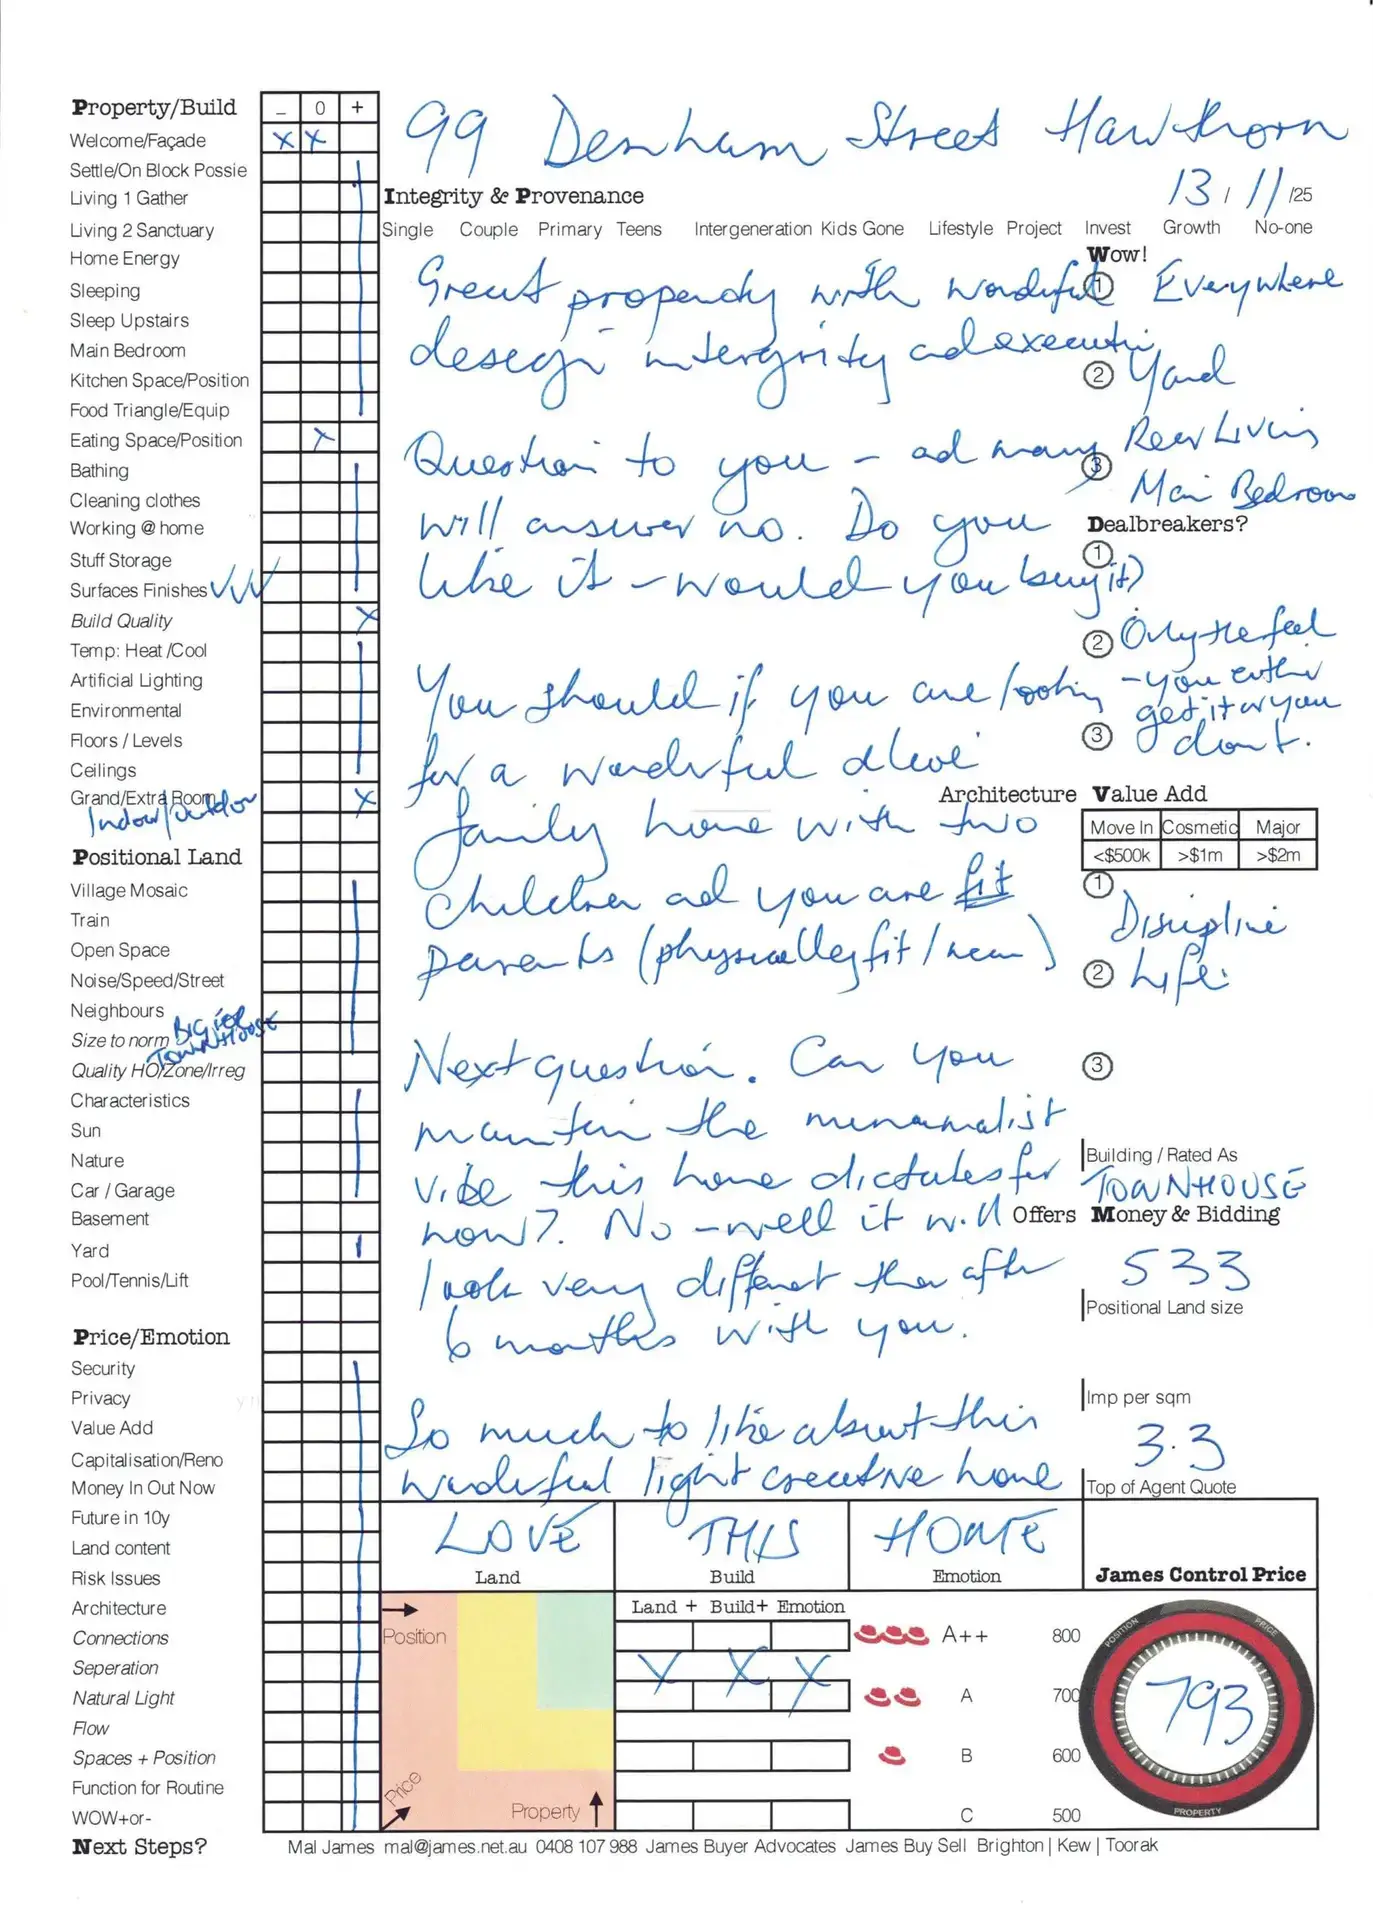 Property/Build - 0 +
99 Denham Street Hawthorn
Welcome/Façade x x
Settle/On Block Possie
Integrity & Provenance 13 / 11 /25
Living 1 Gather
Living 2 Sanctuary
Single Couple Primary Teens Intergeneration Kids Gone Lifestyle Project Invest Growth No-one
Home Energy
Sleeping
Sleep Upstairs
Main Bedroom
Kitchen Space/Position
Food Triangle/Equip
Eating Space/Position x
Bathing
Cleaning clothes
Working @ home
Stuff Storage
Surfaces Finishes
Build Quality x
Temp: Heat /Cool
Artificial Lighting
Environmental
Floors / Levels
Ceilings
Grand/Extra Room x
Indoor/outdoor
Positional Land
Village Mosaic
Train
Open Space
Noise/Speed/Street
Neighbours
Size to norm BIG FOR
TOWNHOUSE
Quality HO/Zone/Irreg
Characteristics
Sun
Nature
Car / Garage
Basement
Yard
Pool/Tennis/Lift
Price/Emotion
Security
Privacy
Value Add
Capitalisation/Reno
Money In Out Now
Future in 10y
Land content
Risk Issues
Architecture
Connections
Seperation
Natural Light
Flow
Spaces + Position
Function for Routine
WOW+or-
Next Steps?
Great property with wonderful
design intergrity and execution
Question to you - ad many
will answer no. Do you
like it - would you buy it?
You should if you are looking
for a wonderful
family home with two
children ad you are fit
parents (physically fit /
Next question. Can you
maintain the minamalist
vibe this home dictates for
now?. No - well it will
look very different then after
6 months with you.
So much to like about this
wonderful light creative home
Wow!
1 Everywhere
2 Yard
3 Rear Living
Main Bedroom
Dealbreakers?
1
2 Only the feel
- you either
get it or you
3 don't.
Architecture Value Add
Move In Cosmetic Major
<$500k >$1m >$2m
1
Discipline
2 Life.
3
Building / Rated As
TOWNHOUSE
Offers Money & Bidding
533
Positional Land size
Imp per sqm
3.3
Top of Agent Quote
LOVE THIS HOME
Land Build Emotion
James Control Price
Position
Price
Property
Land + Build+ Emotion
A++ 800
X X X
A 700
B 600
C 500
POSITION PRICE
793
PROPERTY
Mal James mal@james.net.au 0408 107 988 James Buyer Advocates James Buy Sell Brighton | Kew | Toorak